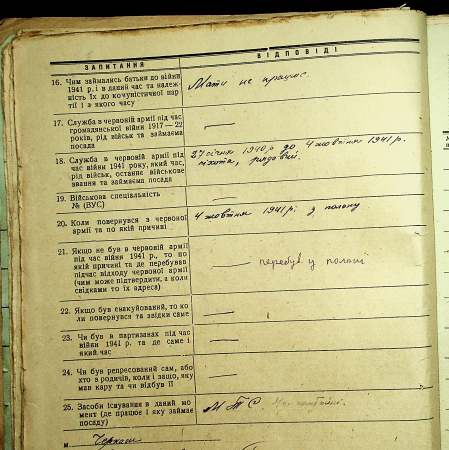 ЗАПИТАННЯ
ВІДПОВІДІ
16. Чим займались батьки до війни
1941 р. і в даний час та належ-
ність їх до комуністичної пар-
тії з якого часу
Мати не працює.
17. Служба в червоній армії під час
громадянської війни 1917—22
років, рід військ та займаєма
посада
18. Служба в червоній армії під
час війни 1941 року, який час,
рід військ, останнє військове
звання та займаєма посада
27 січня 1940 р до 4 жовтня 1941 р.
піхота, рядовий.
19. Військова спеціальність
№ (ВУС)
20. Коли повернувся з червоної
армії та по якій причині
4 жовтня 1941 р. з полону
21. Якщо не був в червоній армії
під час війни 1941 р., то по
якій причині та де перебував
під час відходу червоної армії
(чим може підтвердити, а коли
свідками то їх адреса)
перебув у полоні
22. Якщо був енакуйований, то ко-
ли повернувся та звідки саме
23. Чи був в партизанах під час
війни 1941 р. та де саме і
який час
24. Чи був репресований сам, або
хто з родичів, коли і защо, яку
мав кару та чи відбув її
25. Засоби існування в даний мо-
мент (де працює і яку займає
посаду)
М Т С
м. Черкаси